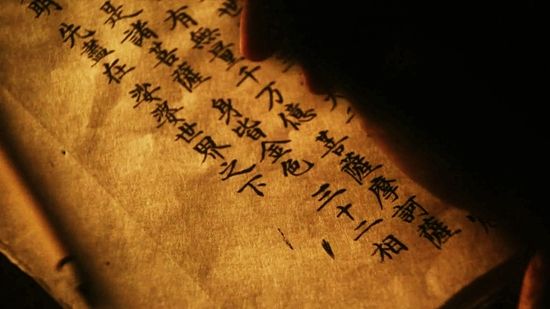 世
有無量千万億菩薩摩訶薩
是諸菩薩身皆金色三十二相
明先盡在娑婆世界之下